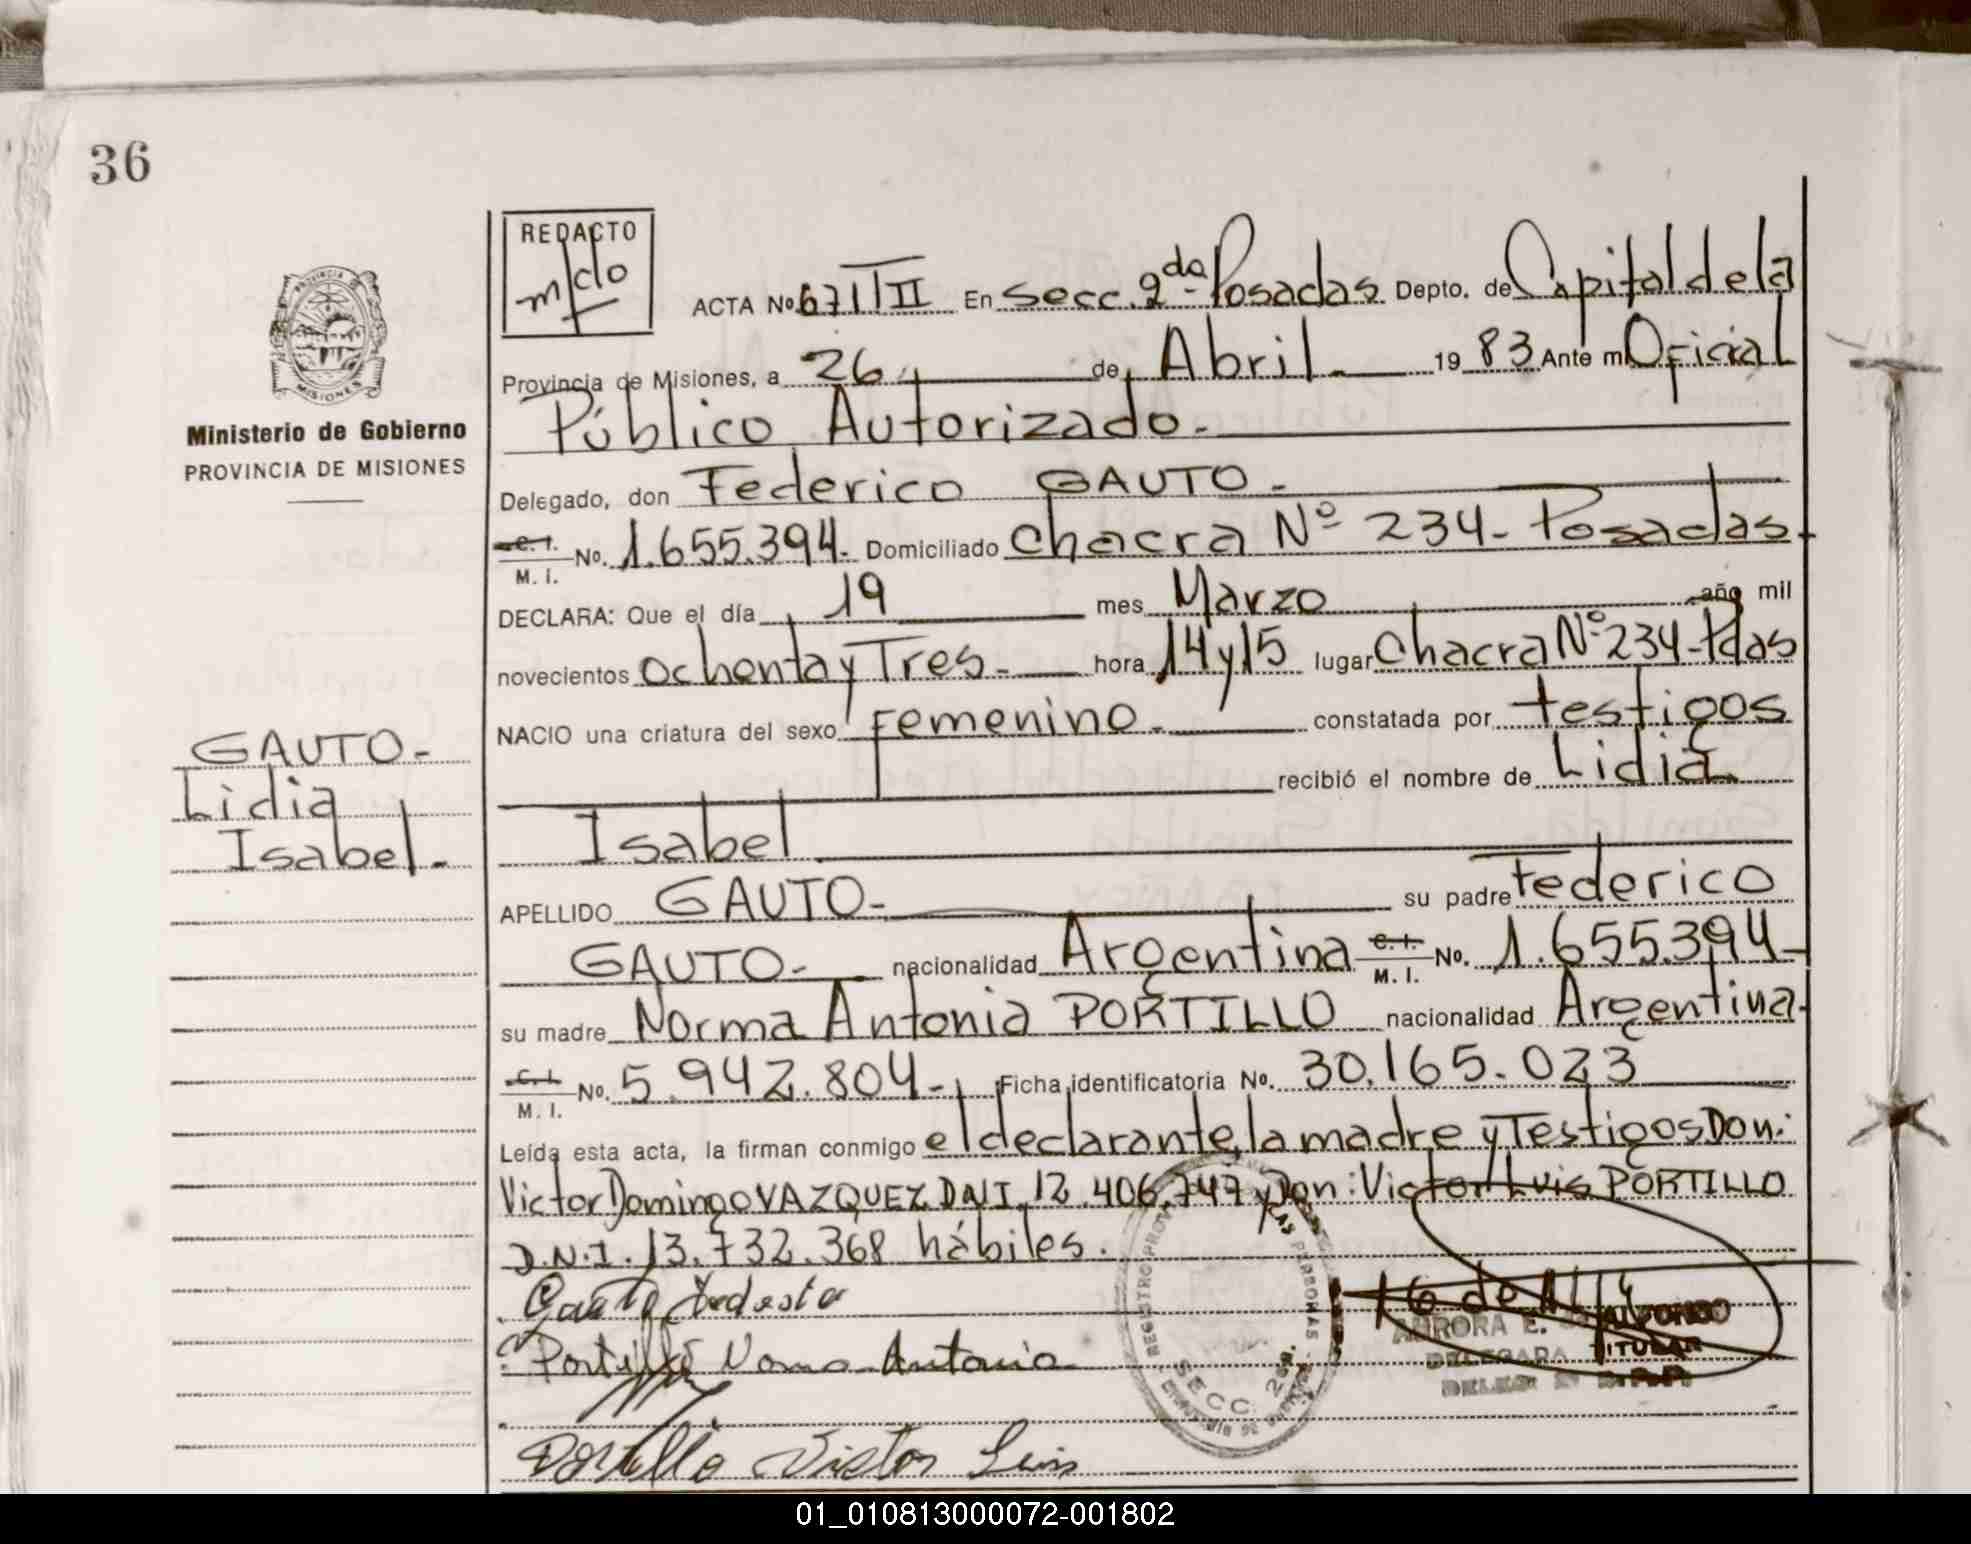 36
REDACTO
PROVINCIA DE MISIONES
Ministerio de Gobierno
PROVINCIA DE MISIONES
ACTA No. 671 TII En Secc. 2da- Posadas Depto. de Capital de la
Provincia de Misiones, a 26 de Abril. 19 83 Ante mi Oficial
Público Autorizado.
Delegado, don Federico GAUTO -
C. I. / M. I. No. 1.655.394. Domiciliado Chacra Nº 234- Posadas.
DECLARA: Que el día 19 mes Marzo año mil
novecientos ochenta y Tres.- hora 14 y 15 lugar Chacra Nº 234-Pdas
NACIO una criatura del sexo Femenino. constatada por testigos
recibió el nombre de Lidia
Isabel
GAUTO-
Lidia
Isabel.
APELLIDO GAUTO- su padre Federico
GAUTO- nacionalidad Argentina C. I. / M. I. No. 1.655.394-
su madre Norma Antonia PORTILLO nacionalidad Argentina.
C. I. / M. I. No. 5.942.804- Ficha identificatoria No. 30.165.023
Leída esta acta, la firman conmigo el declarante, la madre y Testigos Don:
Victor Domingo VAZQUEZ DNI. 12.406.747 y Don: Victor Luis PORTILLO
D.N.I. 13.732.368 hábiles.
Portillo Norma Antonia
Portillo Victor Luis
SECC 2
AURORA E.
DELEGADA TITULAR
01_010813000072-001802